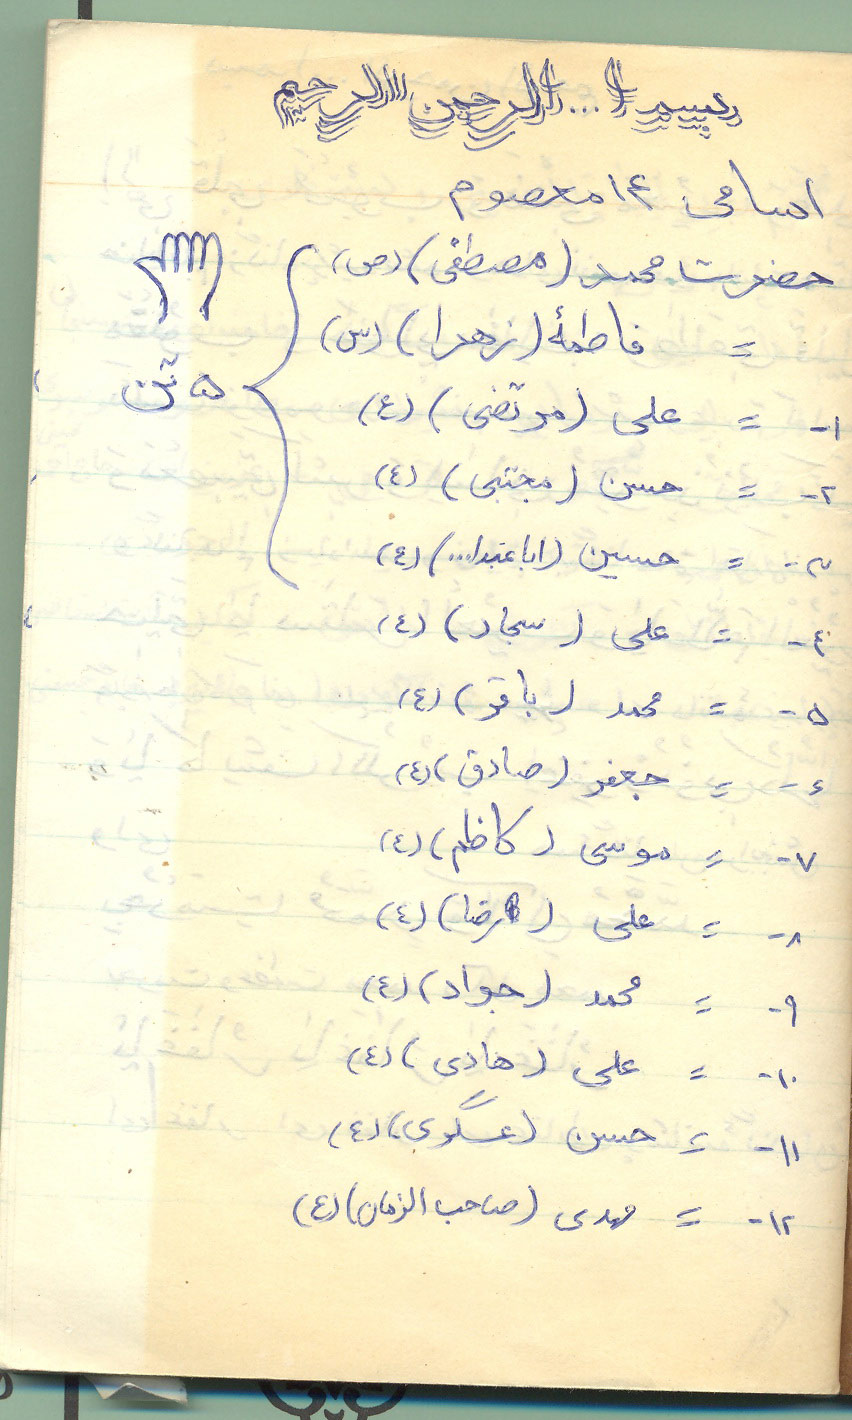 بسم ا... الرحمن الرحیم
اسامی ۱۴ معصوم
حضرت محمد (مصطفی) (ص)
= فاطمهٔ (زهرا) (س)
۵ تن
۱- = علی (مرتضی) (ع)
۲- = حسن (مجتبی) (ع)
۳- = حسین (اباعبدا...) (ع)
٤- = علی (سجاد) (ع)
۵- = محمد (باقر) (ع)
۶- = جعفر (صادق) (ع)
۷- = موسی (کاظم) (ع)
۸- = علی (رضا) (ع)
۹- = محمد (جواد) (ع)
۱۰- = علی (هادی) (ع)
۱۱- = حسن (عسگری) (ع)
۱۲- = مهدی (صاحب الزمان) (ع)